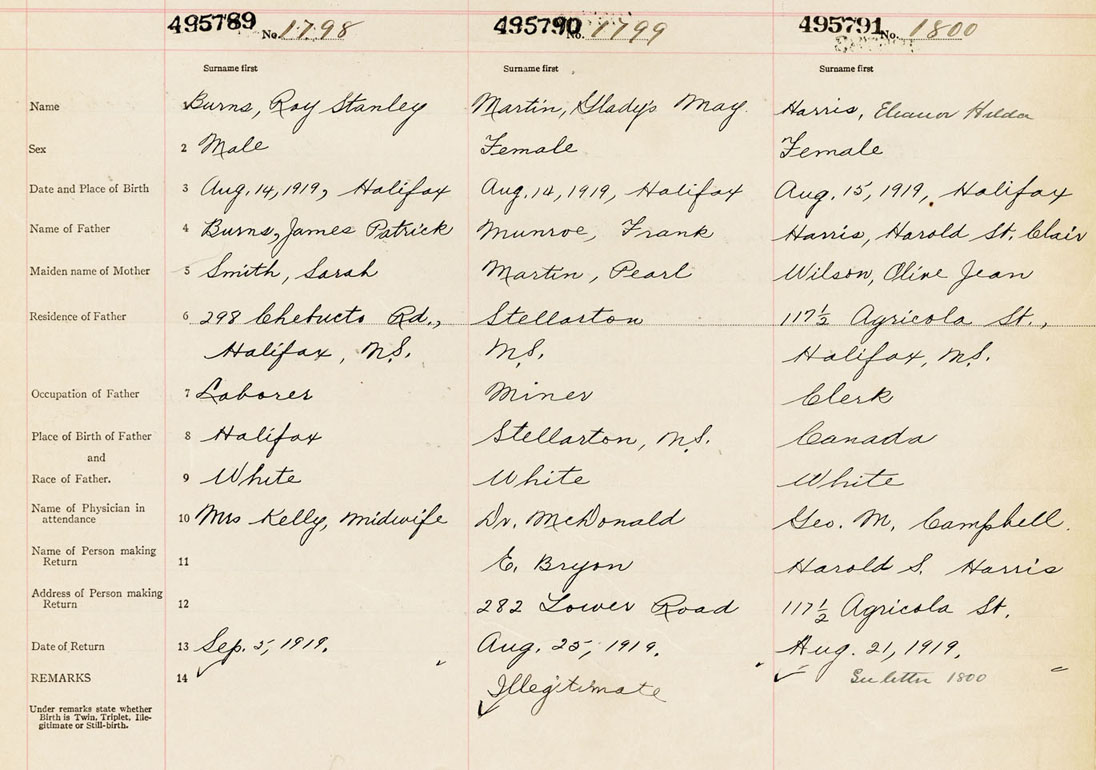 495789 No. 1798 495790 No. 1799 495791 No. 1800
Surname first Surname first Surname first
Name 1 Burns, Roy Stanley Martin, Gladys May. Harris, Eleanor Hilda
Sex 2 Male Female Female
Date and Place of Birth 3 Aug. 14, 1919, Halifax Aug. 14, 1919, Halifax Aug. 15, 1919, Halifax
Name of Father 4 Burns, James Patrick Munroe, Frank Harris, Harold St. Clair
Maiden name of Mother 5 Smith, Sarah Martin, Pearl Wilson, Olive Jean
Residence of Father 6 298 Chebucto Rd., Stellarton 117½ Agricola St.,
Halifax, N.S. N.S. Halifax, N.S.
Occupation of Father 7 Laborer Miner Clerk
Place of Birth of Father 8 Halifax Stellarton, N.S. Canada
and
Race of Father. 9 White White White
Name of Physician in
attendance 10 Mrs Kelly, Midwife Dr. McDonald Geo. M. Campbell.
Name of Person making
Return 11 E. Bryon Harold S. Harris
Address of Person making
Return 12 282 Lower Road 117½ Agricola St.
Date of Return 13 Sep. 5, 1919. Aug. 25, 1919. Aug. 21, 1919.
REMARKS 14 Illegitimate See letter 1800
Under remarks state whether
Birth is Twin, Triplet, Ille-
gitimate or Still-birth.